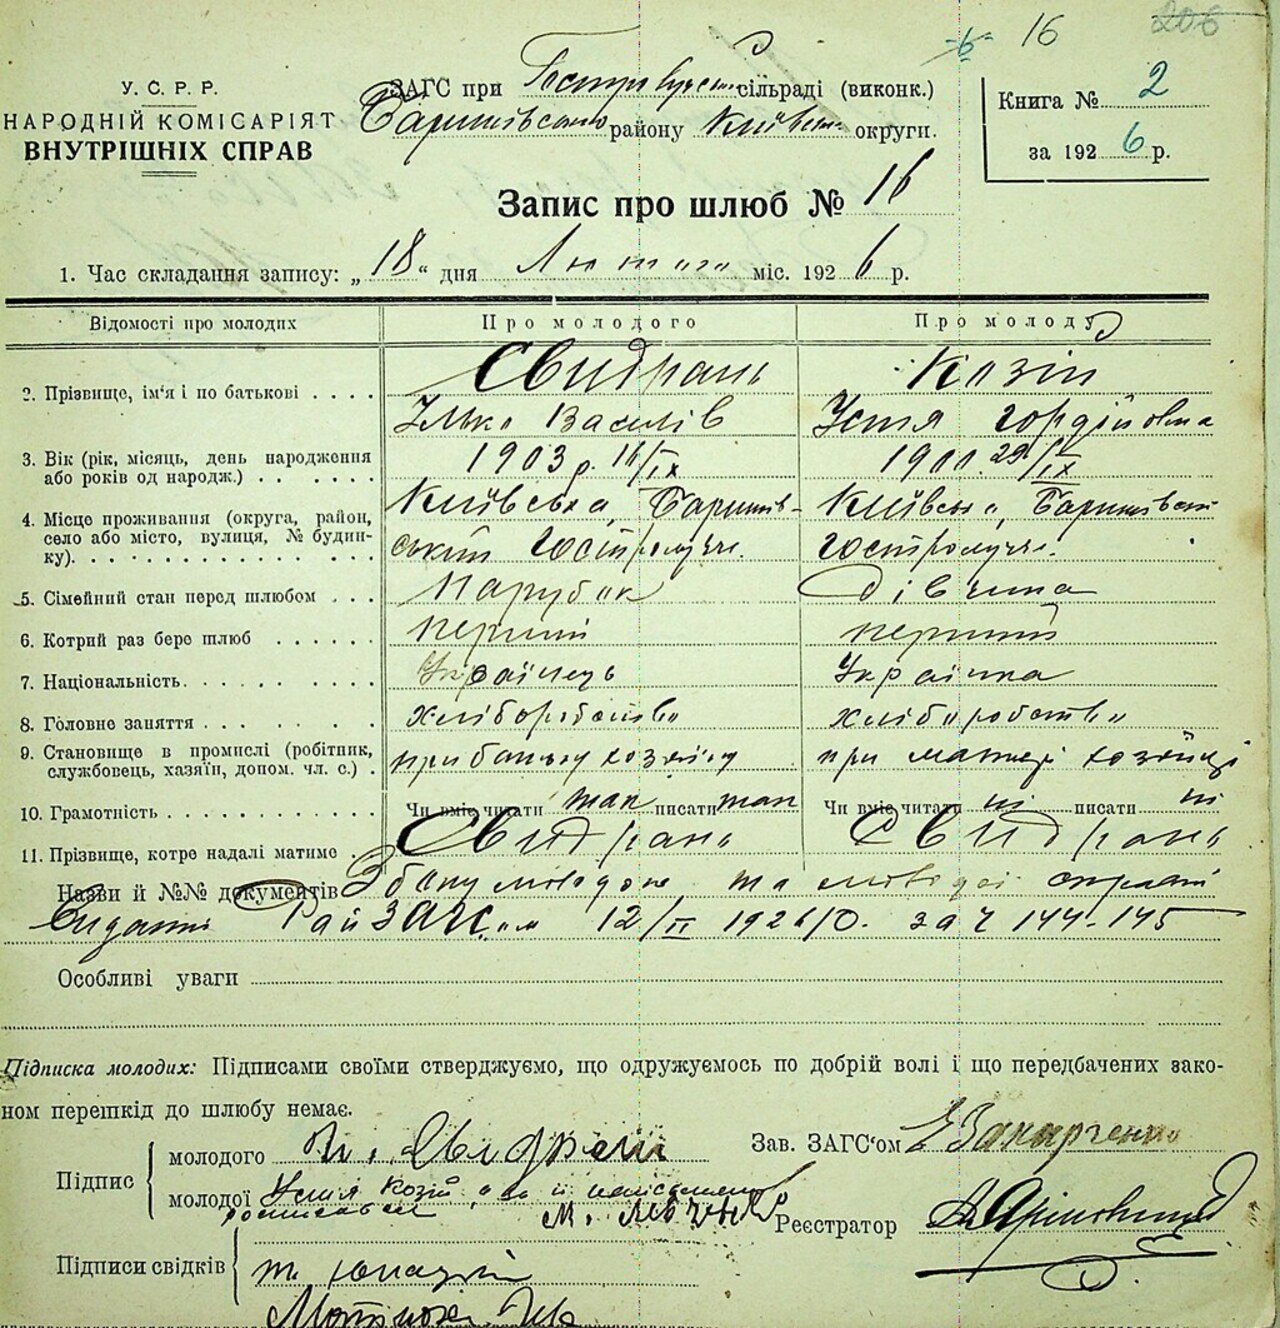 6 16 206
У. С. Р. Р.
НАРОДНІЙ КОМІСАРІЯТ
ВНУТРІШНІХ СПРАВ
ЗАГС при сільраді (виконк.)
Баришівського району Київськ округи.
Книга № 2
за 192 6 р.
Запис про шлюб № 16
1. Час складання запису: „ 18 “ дня Лютого міс. 192 6 р.
Відомості про молодих Про молодого Про молоду
2. Прізвище, ім'я і по батькові . . . . Свидрань Козій
Ілько Василів Устя Гордійовна
3. Вік (рік, місяць, день народження або років од народж.) . . . . . . 1903 р. 16/IX 1900. 29/IX
4. Місце проживання (округа, район, село або місто, вулиця, № будинку). Київська, Баришів- Київська, Баришівськ
ський Гостролуччє. Гостролуччє.
5. Сімейний стан перед шлюбом . . . Парубок Дівчина
6. Котрий раз бере шлюб . . . . . . перший перший
7. Національність. Українець Українка
8. Головне заняття хліборобство хліборобство
9. Становище в промислі (робітник, службовець, хазяїн, допом. чл. с.) . при батьку хозяїну при матері хозяйці
10. Грамотність Чи вміє читати так писати так Чи вміє читати ні писати ні
11. Прізвище, котре надалі матиме . Свидрань Свидрань
Назви й №№ документів З боку молодого та молодої справки
видані РайЗАГС'ом 12/II 1926 р. за ч 144-145
Особливі уваги
Підписка молодих: Підписами своїми стверджуємо, що одружуємось по добрій волі і що передбачених зако-
ном перешкід до шлюбу немає.
Підпис молодого Зав. ЗАГС'ом Захарченко
молодої Устя Козій, а за її неписьменну
росписався М. Реєстратор
Підписи свідків